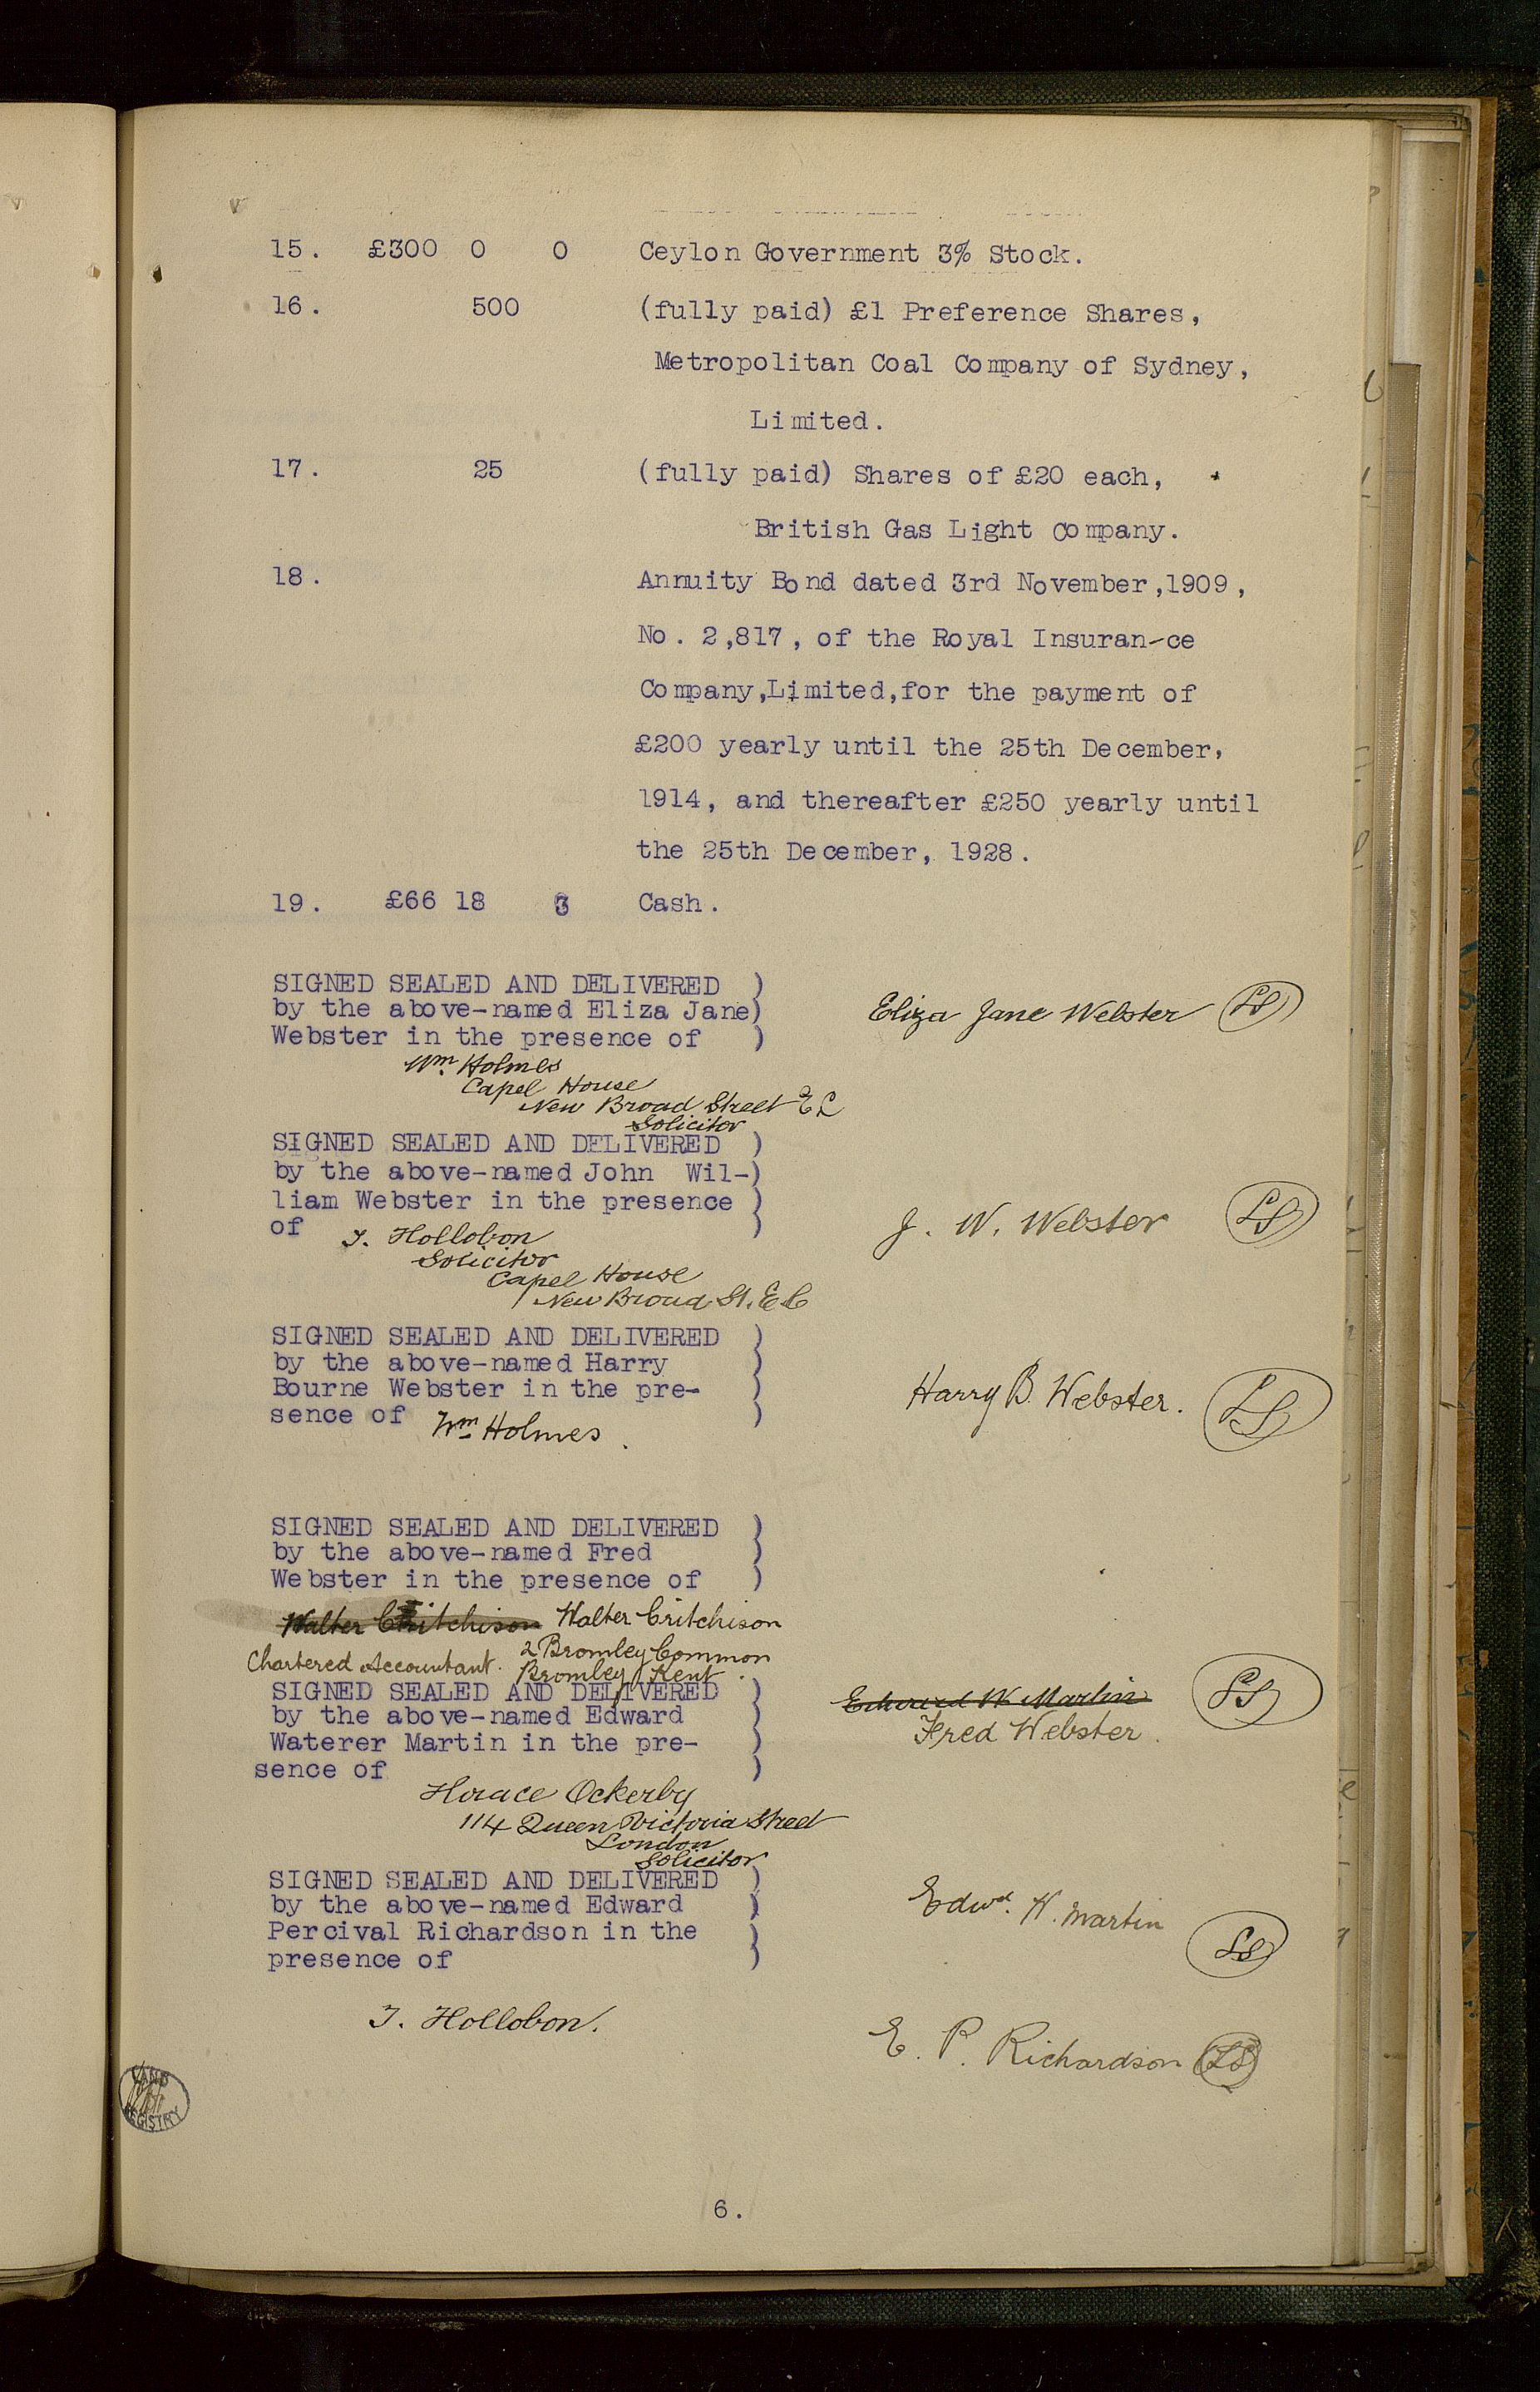 15. £300 0 0 Ceylon Government 3% Stock.
16. 500 (fully paid) £1 Preference Shares,
Metropolitan Coal Company of Sydney,
Limited.
17. 25 (fully paid) Shares of £20 each,
British Gas Light Company.
18. Annuity Bond dated 3rd November,1909,
No. 2,817, of the Royal Insuran-ce
Company,Limited,for the payment of
£200 yearly until the 25th December,
1914, and thereafter £250 yearly until
the 25th December, 1928.
19. £66 18 3 Cash.
SIGNED SEALED AND DELIVERED )
by the above-named Eliza Jane)
Webster in the presence of )
Eliza Jane Webster LS
Wm. Holmes
Capel House
New Broad Street E C
Solicitor
SIGNED SEALED AND DELIVERED )
by the above-named John Wil-)
liam Webster in the presence )
of )
J. W. Webster LS
J. Hollobon
Solicitor
Capel House
New Broad St. E C
SIGNED SEALED AND DELIVERED )
by the above-named Harry )
Bourne Webster in the pre- )
sence of )
Harry B. Webster. LS
Wm Holmes.
SIGNED SEALED AND DELIVERED )
by the above-named Fred )
Webster in the presence of )
Walter Critchison Walter Critchison
Chartered Accountant. 2 Bromley Common
Bromley Kent.
Edward W Martin LS
Fred Webster.
SIGNED SEALED AND DELIVERED )
by the above-named Edward )
Waterer Martin in the pre- )
sence of )
Horace Ockerby
114 Queen Victoria Street
London
Solicitor
Edwd. W. Martin LS
SIGNED SEALED AND DELIVERED )
by the above-named Edward )
Percival Richardson in the )
presence of )
J. Hollobon.
E. P. Richardson LS
LAND
REGISTRY
6.